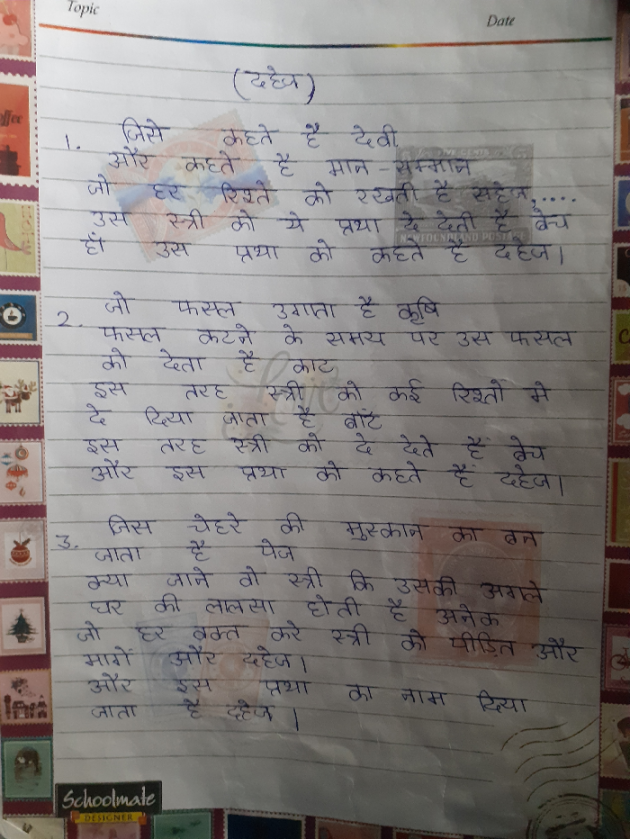 Topic
Date
(दहेज)
1. जिसे कहते है देवी
और कहते है मान-सम्मान
जो हर रिश्ते को रखती है सहेज....
उस स्त्री को ये प्रथा दे देती है बेच
हाँ उस प्रथा को कहते है दहेज।
2. जो फसल उगाता है कृषि
फसल कटने के समय पर उस फसल
को देता है काट
इस तरह स्त्री को कई रिश्तो मे
दे दिया जाता है बाँट
इस तरह स्त्री को दे देते हैं बेच
और इस प्रथा को कहते हैं दहेज।
3. जिस चेहरे की मुस्कान का बन
जाता है पेज
क्या जाने वो स्त्री कि उसकी अगले
घर की लालसा होती है अनेक
जो हर वक्त करे स्त्री को पीड़ित और
मागें और दहेज।
और इस प्रथा का नाम दिया
जाता है दहेज।
NEWFOUNDLAND POSTAGE
Love
Schoolmate
DESIGNER